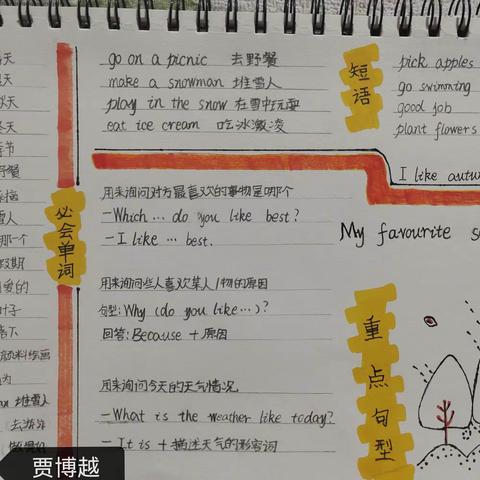 冬天
季节
野餐
雪人
哪一个
假期
叶子
落下
颜料绘画
堆雪人
去游泳
做得好
必会单词
go on a picnic 去野餐
make a snowman 堆雪人
play in the snow 在雪中玩耍
eat ice cream 吃冰激凌
短语
pick apples
go swimming
good job
plant flowers
用来询问对方最喜欢的事物是哪个
-Which … do you like best?
-I like … best.
用来询问某人喜欢某人/物的原因
句型: Why (do you like…)?
回答: Because + 原因
用来询问今天的天气情况
-What is the weather like today?
-It is + 描述天气的形容词
I like autu
My favourite s
重点句型
贾博越